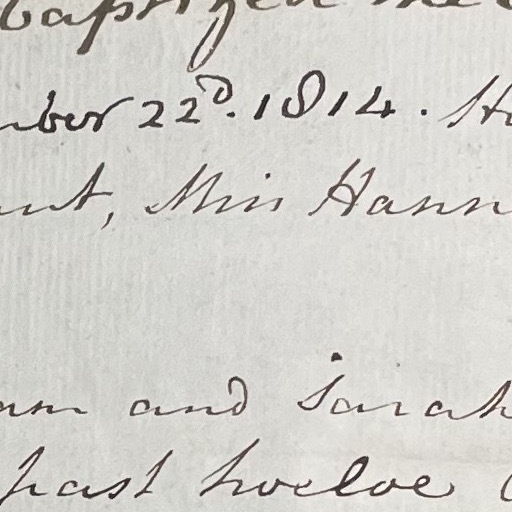 baptized the
mber 22d. 1814. H
unt, Miss Hann
am and Sarah
past twelve